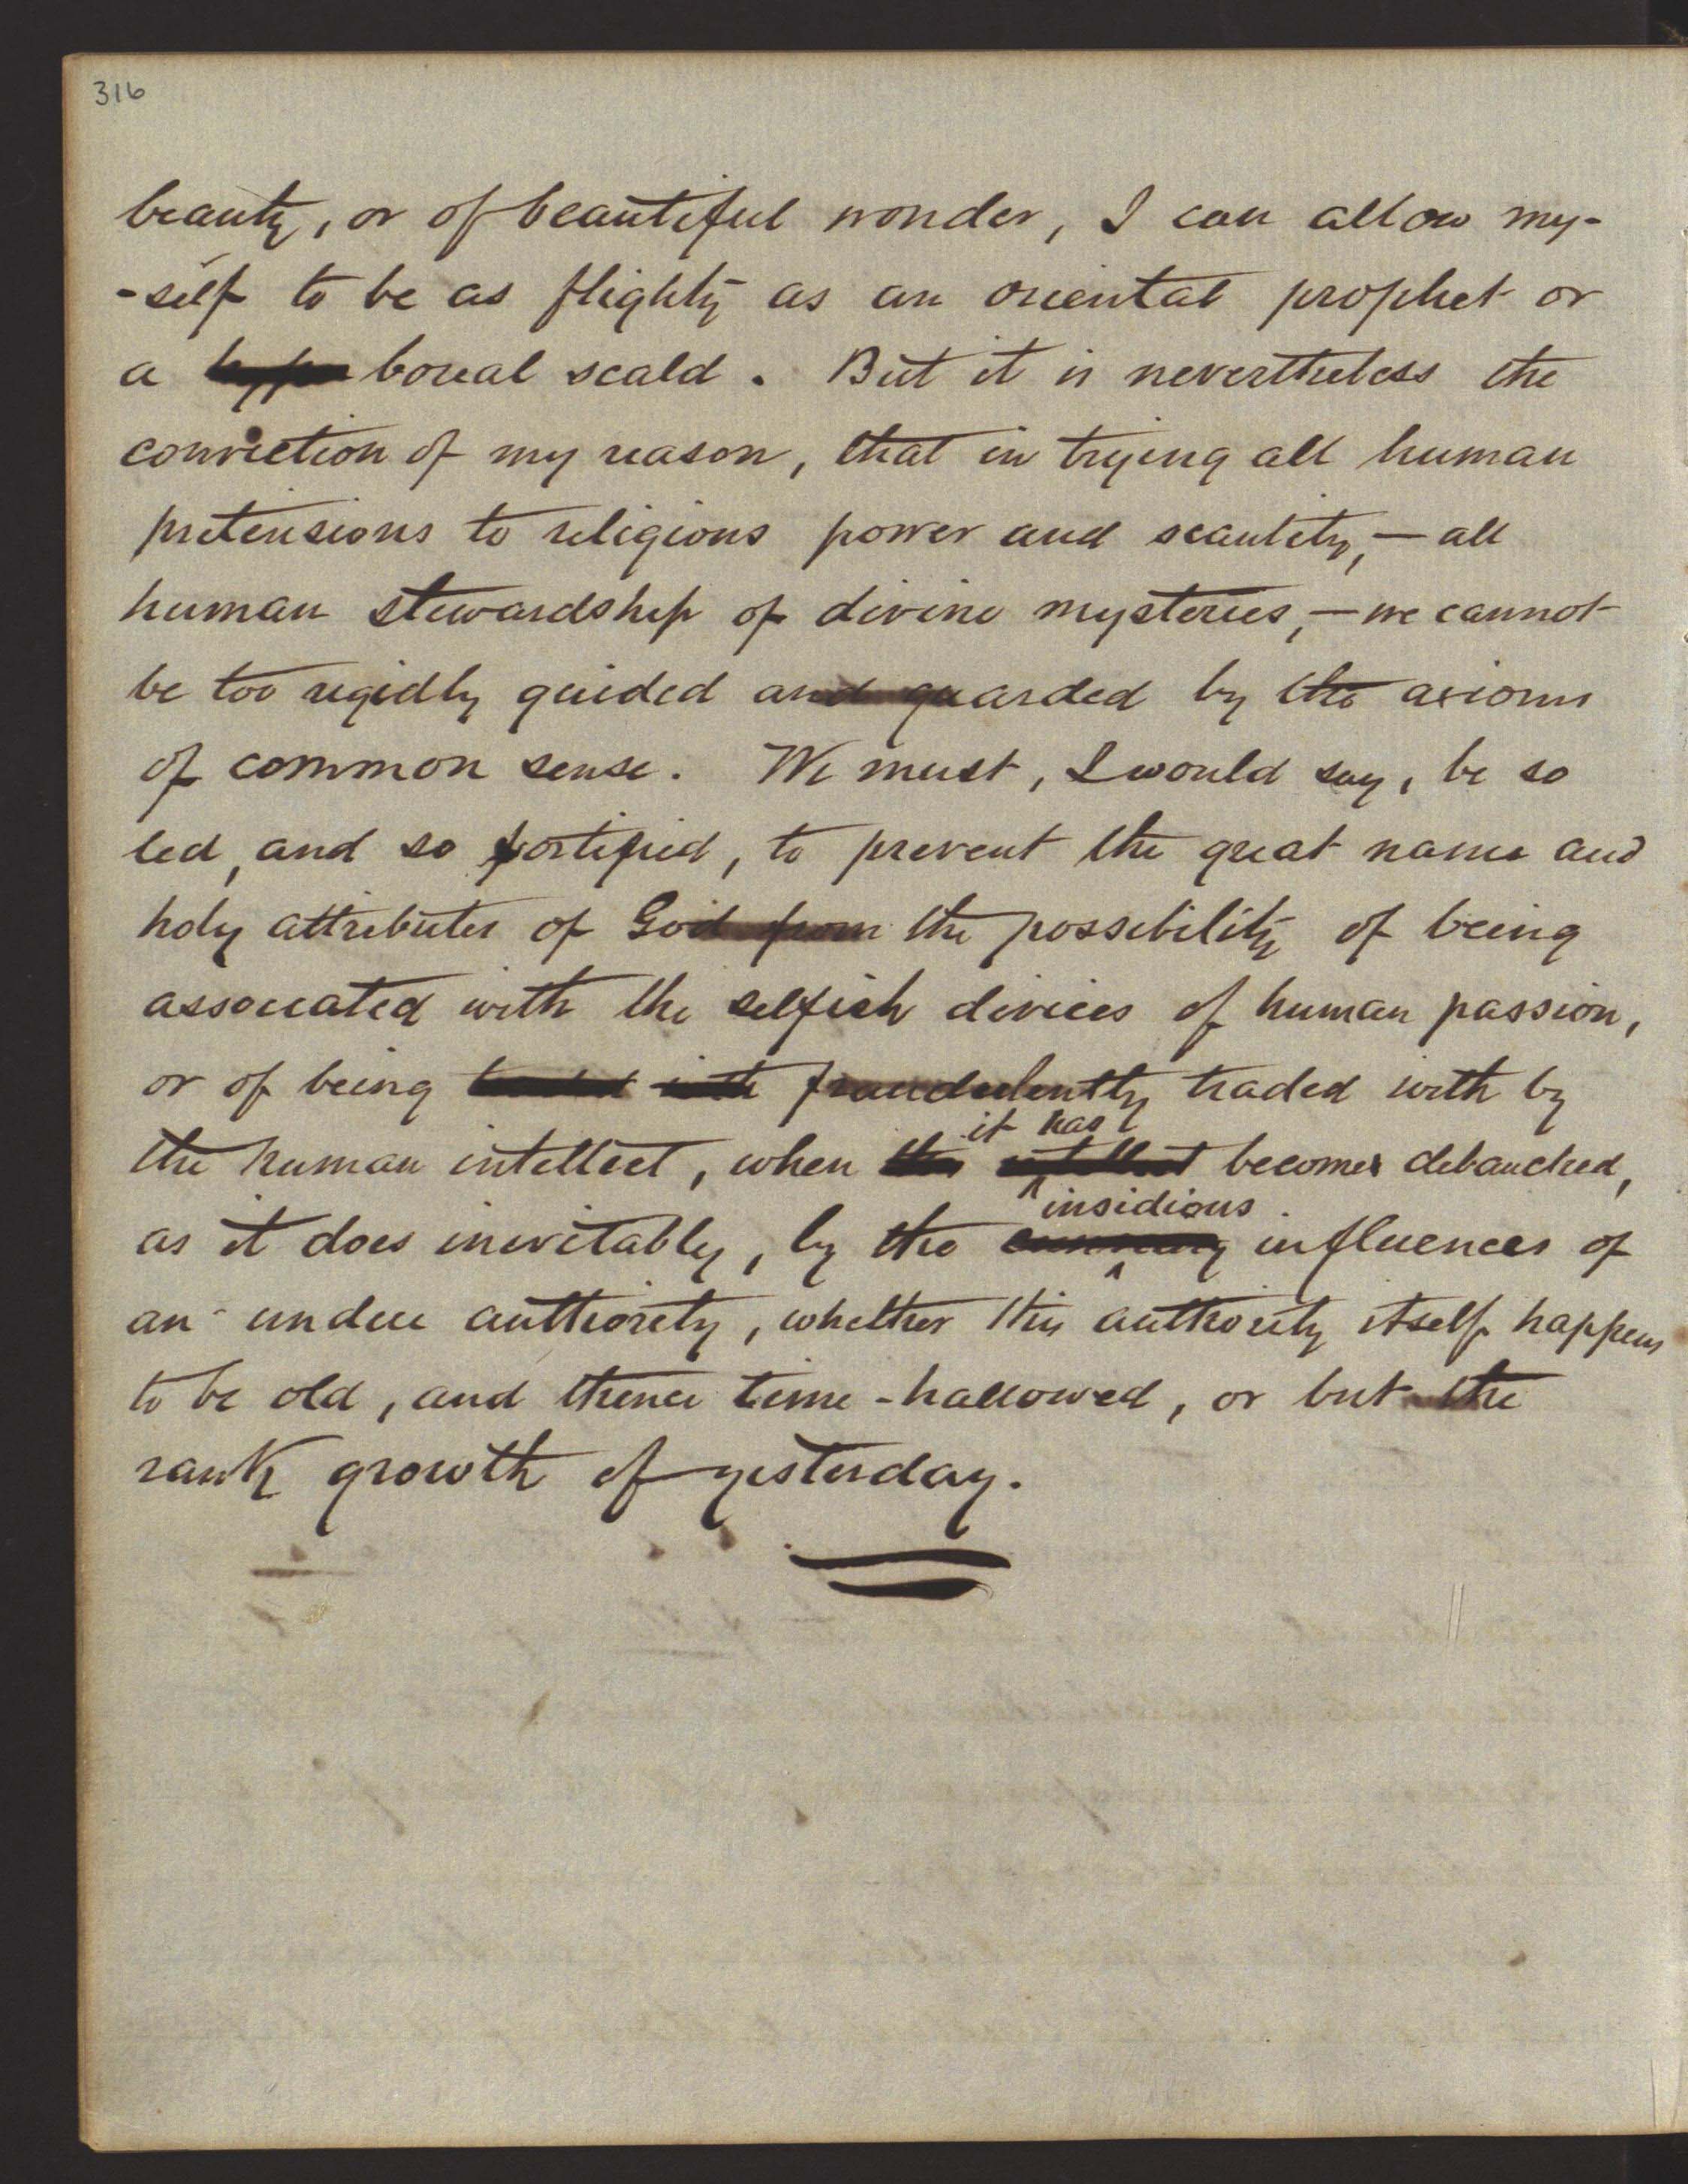 316
beauty, or of beautiful wonder, I can allow my-
-self to be as flighty as an oriental prophet or
a boreal scald. But it is nevertheless the
conviction of my reason, that in trying all human
pretensions to religious power and scantity, — all
human stewardship of divine mysteries, — we cannot
be too rigidly guided and guarded by the axioms
of common sense. We must, I would say, be so
led, and so fortified, to prevent the great name and
holy attributes of God from the possibility of being
associated with the selfish devices of human passion,
or of being traded with fraudulently traded with by
it has
the human intellect, when the intellect becomes debauched,
insidious
as it does inevitably, by the cunning influences of
an undue authority, whether this authority itself happens
to be old, and thence time-hallowed, or but the
rank growth of yesterday.